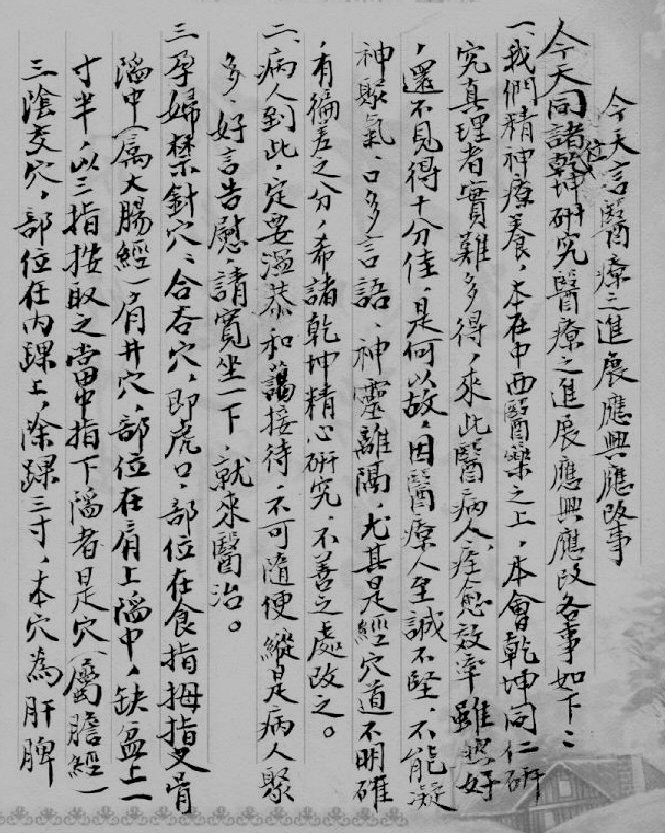 今天言醫療之進展應興應改事
今天同諸位乾坤研究醫療之進展應興應改各事如下：
一、我們精神療養，本在中西醫藥之上，本會乾坤同仁研
究真理者實難多得，來此醫病人，痊愈效率雖然好
，還不見得十分佳，是何以故，因醫療人至誠不堅，不能凝
神聚氣、口多言語、神靈離隔，尤其是經穴道不明確
，有偏差之分，希諸乾坤精心研究，不善之處改之。
二、病人到此，定要溫恭和藹接待，不可隨便，縱是病人聚
多，好言告慰，請寬坐一下，就來醫治。
三、孕婦禁針穴、合谷穴，即虎口，部位在食指拇指叉骨
陷中（屬大腸經）肩井穴，部位在肩上陷中，缺盆上一
寸半，以三指按取之當中指下陷者是穴（屬膽經）
三陰交穴，部位在內踝上，除踝三寸，本穴為肝脾